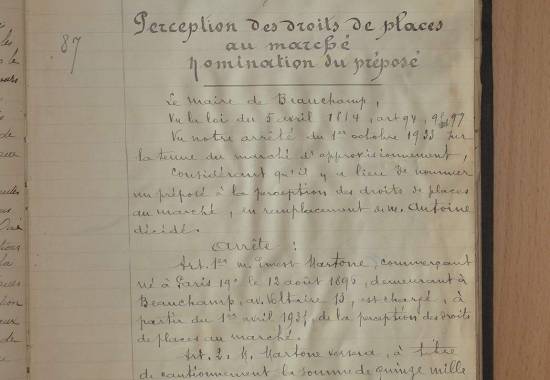 87
Perception des droits de places
au marché
Nomination du préposé
Le Maire de Beauchamp,
Vu la loi du 5 avril 1884, art 94, 95, 97
Vu notre arrêté du 1er octobre 1933 sur
la tenue du marché d'approvisionnement,
Considérant qu'il y a lieu de nommer
un préposé à la perception des droits de places
au marché, en remplacement de M. Antoine
décédé.
Arrête :
Art. 1er M. Ernest Martone, commerçant
né à Paris 19e le 12 août 1896, demeurant à
Beauchamp, av. Voltaire 13, est chargé, à
partir du 1er avril 1935, de la perception des droits
de places au marché.
Art. 2. M. Martone versera, à titre
de cautionnement la somme de quinze mille